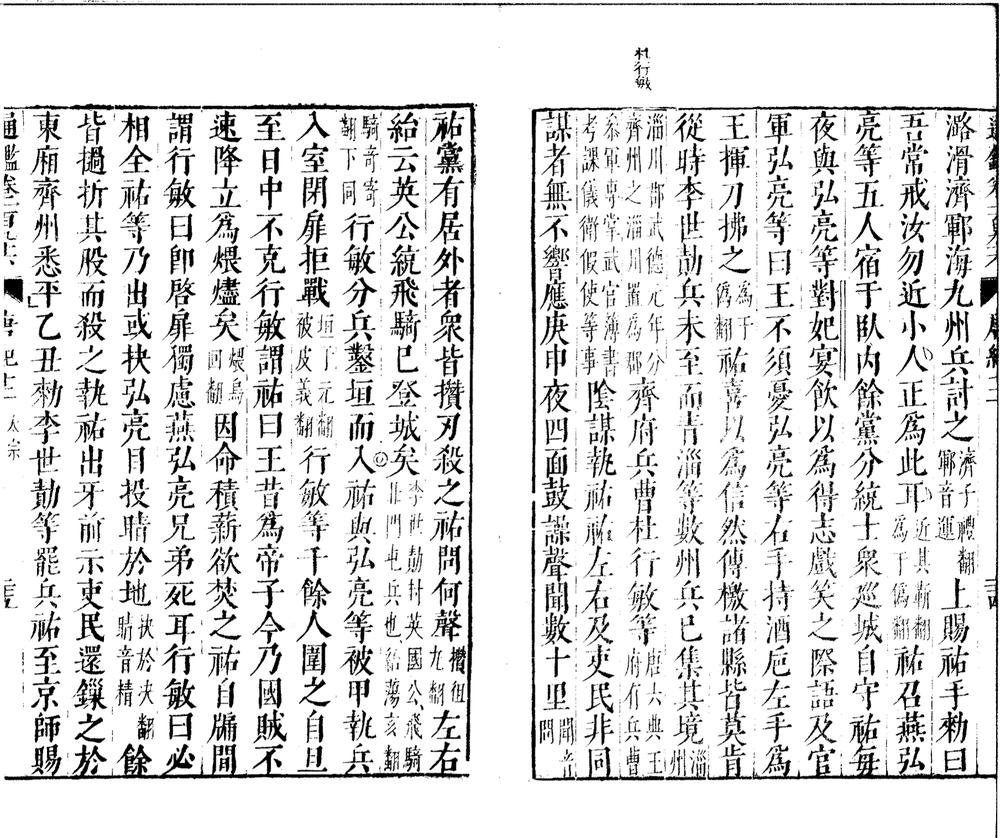 杜行敏
潞滑濟鄆海九州兵討之濟子禮翻鄆音運上賜祐手勑曰
吾常戒汝勿近小人正爲此耳近其靳翻爲于僞翻祐召燕弘
亮等五人宿于臥內餘黨分統士衆巡城自守祐每
夜與弘亮等對妃宴飮以爲得志戲笑之際語及官
軍弘亮等曰王不須憂弘亮等右手持酒巵左手爲
王揮刀拂之爲于僞翻祐喜以爲信然傳檄諸縣皆莫肯
從時李世勣兵未至而靑淄等數州兵已集其境淄州
淄川郡武德元年分齊州之淄川置爲郡齊府兵曹杜行敏等唐六典王府有兵曹
參軍專掌武官簿書考課儀衛假使等事陰謀執祐祐左右及吏民非同
謀者無不響應庚申夜四面鼓譟聲聞數十里聞音問
祐黨有居外者衆皆攢刃殺之祐問何聲攢徂九翻左右
紿云英公統飛騎已登城矣李世勣封英國公飛騎北門屯兵也紿蕩亥翻
騎奇寄翻下同行敏分兵鑿垣而入祐與弘亮等被甲執兵
入室閉扉拒戰垣于元翻被皮義翻行敏等千餘人圍之自旦
至日中不克行敏謂祐曰王昔爲帝子今乃國賊不
速降立爲煨燼矣煨烏回翻因命積薪欲焚之祐自牖間
謂行敏曰卽啓扉獨慮燕弘亮兄弟死耳行敏曰必
相全祐等乃出或抉弘亮目投睛於地抉於決翻睛音精餘
皆撾折其股而殺之執祐出牙前示吏民還鏁之於
東廂齊州悉平乙丑勑李世勣等罷兵祐至京師賜
通鑑卷一百九十六 唐紀十二 太宗